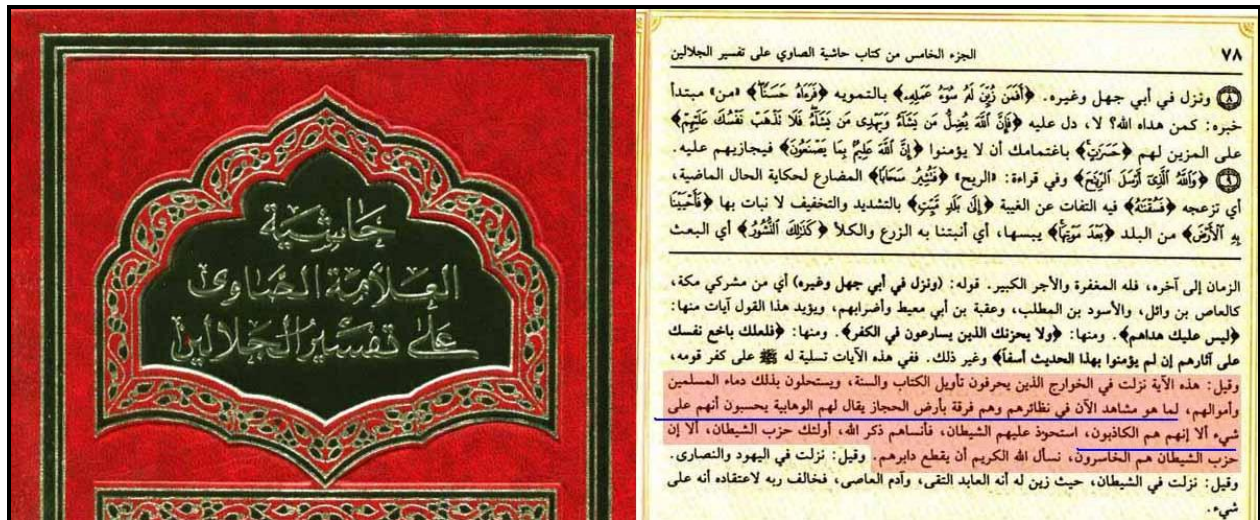 حاشية
العلامة الصاوي
على تفسير الجلالين
٧٨
الجزء الخامس من كتاب حاشية الصاوي على تفسير الجلالين
٨ ونزل في أبي جهل وغيره. ﴿أَفَمَن زُيِّنَ لَهُ سُوٓءُ عَمَلِهِۦ﴾ بالتمويه ﴿فَرَءَاهُ حَسَنًا﴾ «من» مبتدأ
خبره: كمن هداه الله؟ لا، دل عليه ﴿فَإِنَّ ٱللَّهَ يُضِلُّ مَن يَشَآءُ وَيَهْدِى مَن يَشَآءُ فَلَا تَذْهَبْ نَفْسُكَ عَلَيْهِمْ﴾
على المزين لهم ﴿حَسَرَٰتٍ﴾ باغتمامك أن لا يؤمنوا ﴿إِنَّ ٱللَّهَ عَلِيمٌۢ بِمَا يَصْنَعُونَ﴾ فيجازيهم عليه.
٩ ﴿وَٱللَّهُ ٱلَّذِىٓ أَرْسَلَ ٱلرِّيَٰحَ﴾ وفي قراءة: «الريح» ﴿فَتُثِيرُ سَحَابًا﴾ المضارع لحكاية الحال الماضية،
أي تزعجه ﴿فَسُقْنَٰهُ﴾ فيه التفات عن الغيبة ﴿إِلَىٰ بَلَدٍ مَّيِّتٍ﴾ بالتشديد والتخفيف لا نبات بها ﴿فَأَحْيَيْنَا
بِهِ ٱلْأَرْضَ﴾ من البلد ﴿بَعْدَ مَوْتِهَا﴾ يبسها، أي أنبتنا به الزرع والكلأ ﴿كَذَٰلِكَ ٱلنُّشُورُ﴾ أي البعث
الزمان إلى آخره، فله المغفرة والأجر الكبير. قوله: (ونزل في أبي جهل وغيره) أي من مشركي مكة،
كالعاص بن وائل، والأسود بن المطلب، وعقبة بن أبي معيط وأضرابهم، ويؤيد هذا القول آيات منها:
﴿ليس عليك هداهم﴾. ومنها: ﴿ولا يحزنك الذين يسارعون في الكفر﴾. ومنها: ﴿فلعلك باخع نفسك
على آثارهم إن لم يؤمنوا بهذا الحديث أسفاً﴾ وغير ذلك. ففي هذه الآيات تسلية له ﷺ على كفر قومه،
وقيل: هذه الآية نزلت في الخوارج الذين يحرفون تأويل الكتاب والسنة، ويستحلون بذلك دماء المسلمين
وأموالهم، لما هو مشاهد الآن في نظائرهم وهم فرقة بأرض الحجاز يقال لهم الوهابية يحسبون أنهم على
شيء ألا إنهم هم الكاذبون، استحوذ عليهم الشيطان، فأنساهم ذكر الله، أولئك حزب الشيطان، ألا إن
حزب الشيطان هم الخاسرون، نسأل الله الكريم أن يقطع دابرهم. وقيل: نزلت في اليهود والنصارى.
وقيل: نزلت في الشيطان، حيث زين له أنه العابد التقى، وآدم العاصى، فخالف ربه لاعتقاده أنه على
شيء.